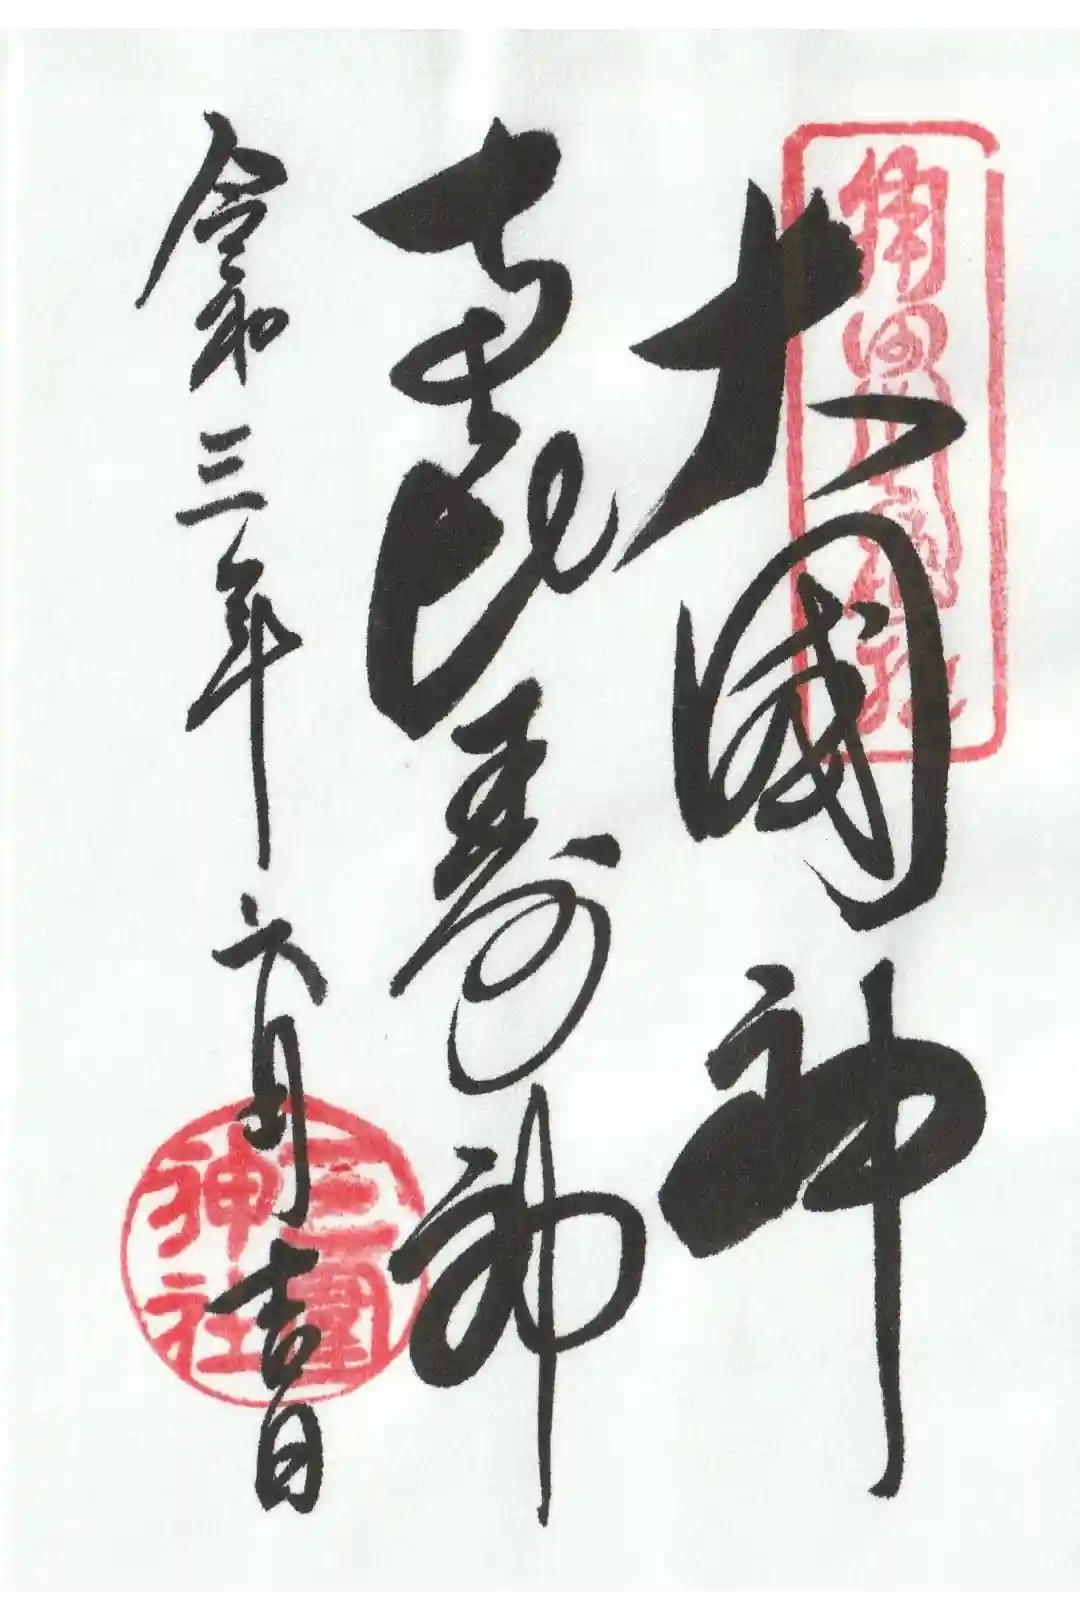 大國神
恵比寿神
令和三年六月吉日
三囲神社